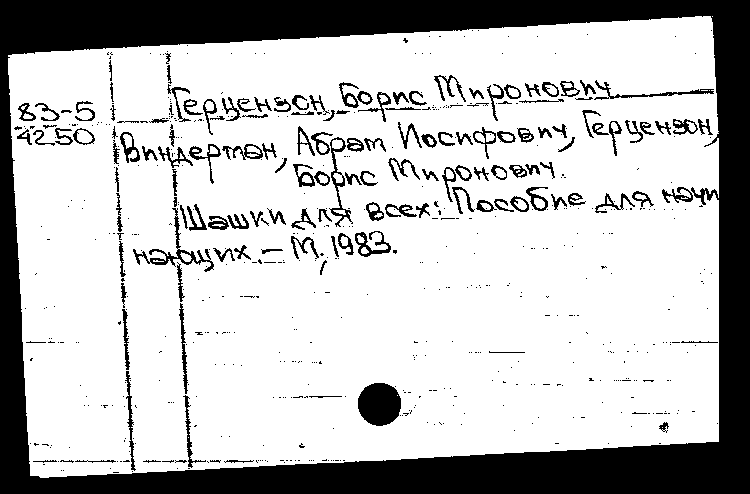 83-5
4250
Герцензон, Борис Миронович
Виндерман, Абрам Иосифович, Герцензон,
Борис Миронович.
Шашки для всех: Пособие для начи
нающих. – М., 1983.